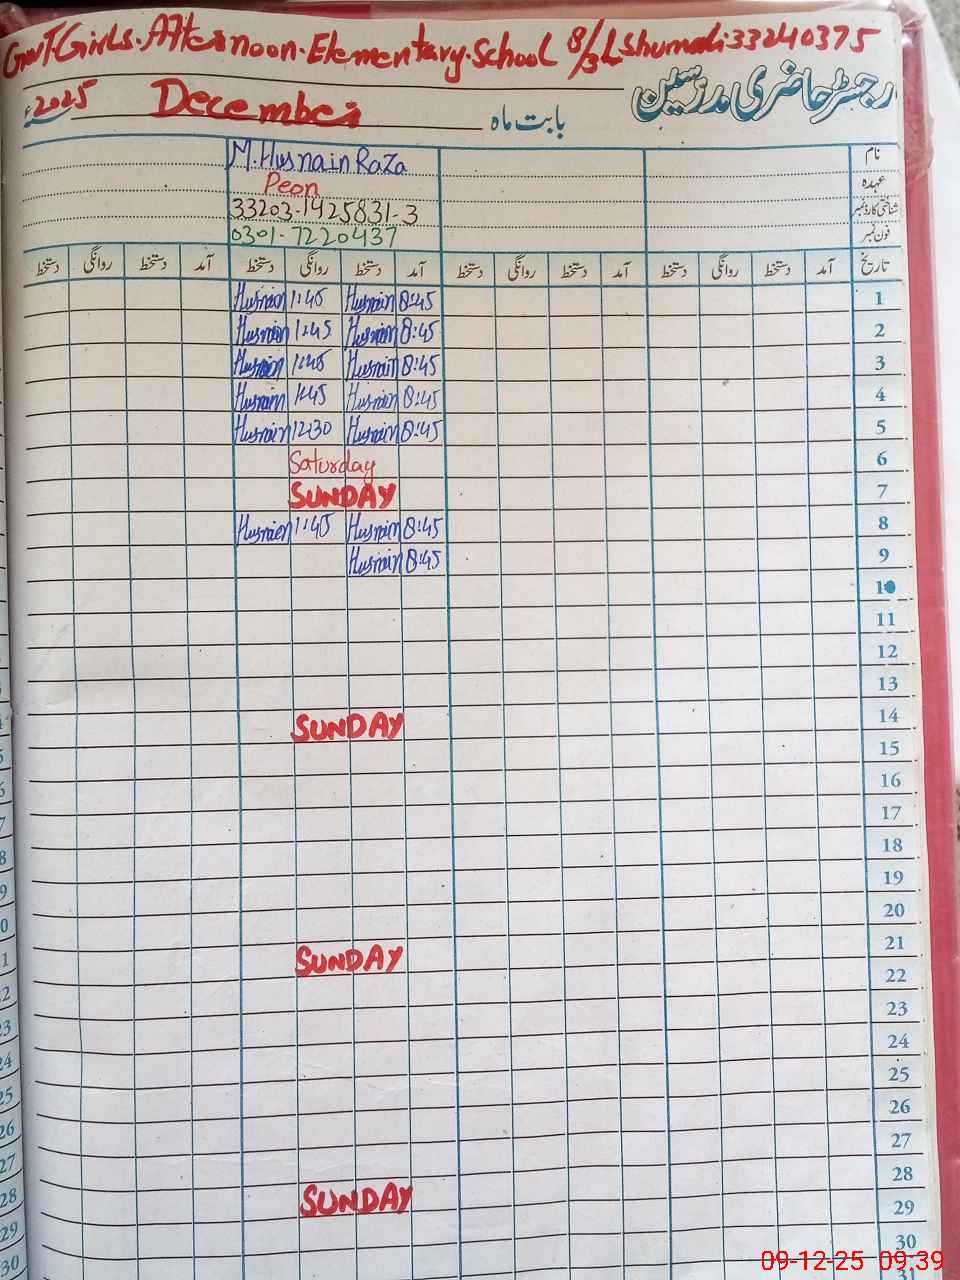 Govt. Girls. Afternoon. Elementary. School 8/3L Shumali 33240375
رجسٹر حاضری مدرسین
بابت ماہ December 2025ء
نام M. Husnain Raza
عہدہ Peon
شناختی کارڈ نمبر 33203-1425831-3
فون نمبر 0301-7220437
تاریخ آمد دستخط روانگی دستخط آمد دستخط روانگی دستخط آمد دستخط روانگی دستخط آمد دستخط روانگی دستخط
1 8:45 Husnain 1:45 Husnain
2 8:45 Husnain 1:45 Husnain
3 8:45 Husnain 1:45 Husnain
4 8:45 Husnain 1:45 Husnain
5 8:45 Husnain 12:30 Husnain
6 Saturday
7 SUNDAY
8 8:45 Husnain 1:45 Husnain
9 8:45 Husnain
10
11
12
13
14 SUNDAY
15
16
17
18
19
20
21 SUNDAY
22
23
24
25
26
27
28 SUNDAY
29
30
09-12-25 09:39